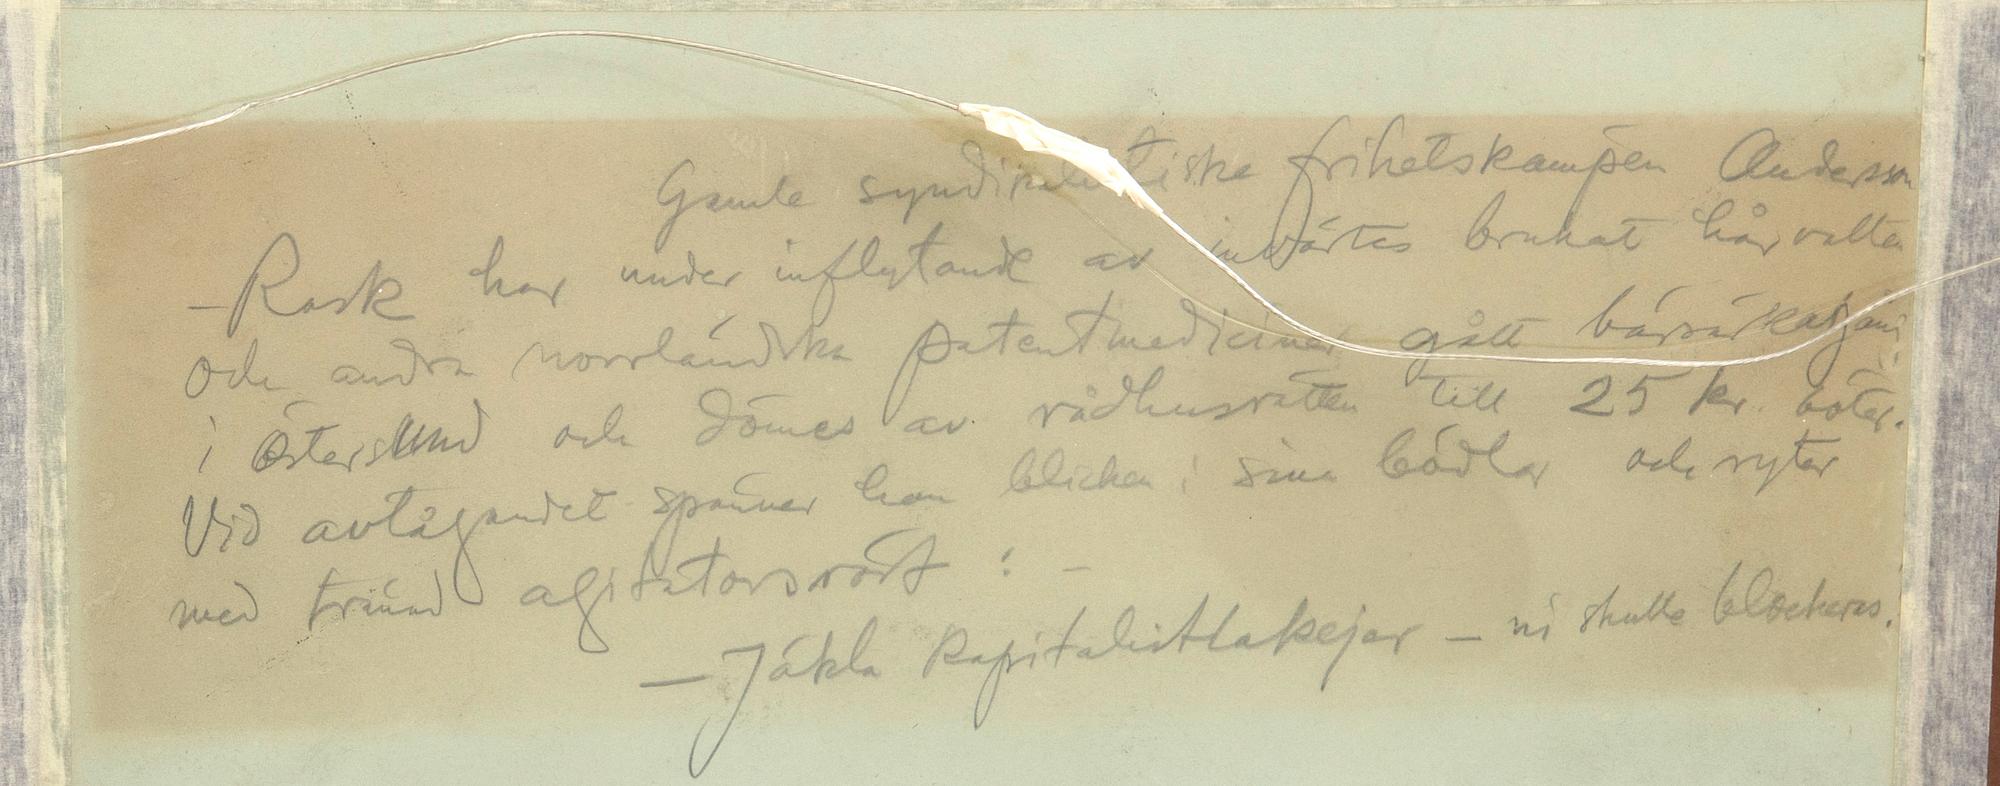 Gamle syndikalistiske frihetskämpen Andersson
– Rask har under inflytande av invärtes brukat hårvatten
och andra norrländska patentmediciner gått bärsärkagång
i Östersund och dömes av rådhusrätten till 25 kr. böter.
Vid avtågandet spänner han blicken i sina bödlar och ryter
med tränad agitatorsröst : –
– Jäkla kapitalistlakejer – ni skulle blockeras.